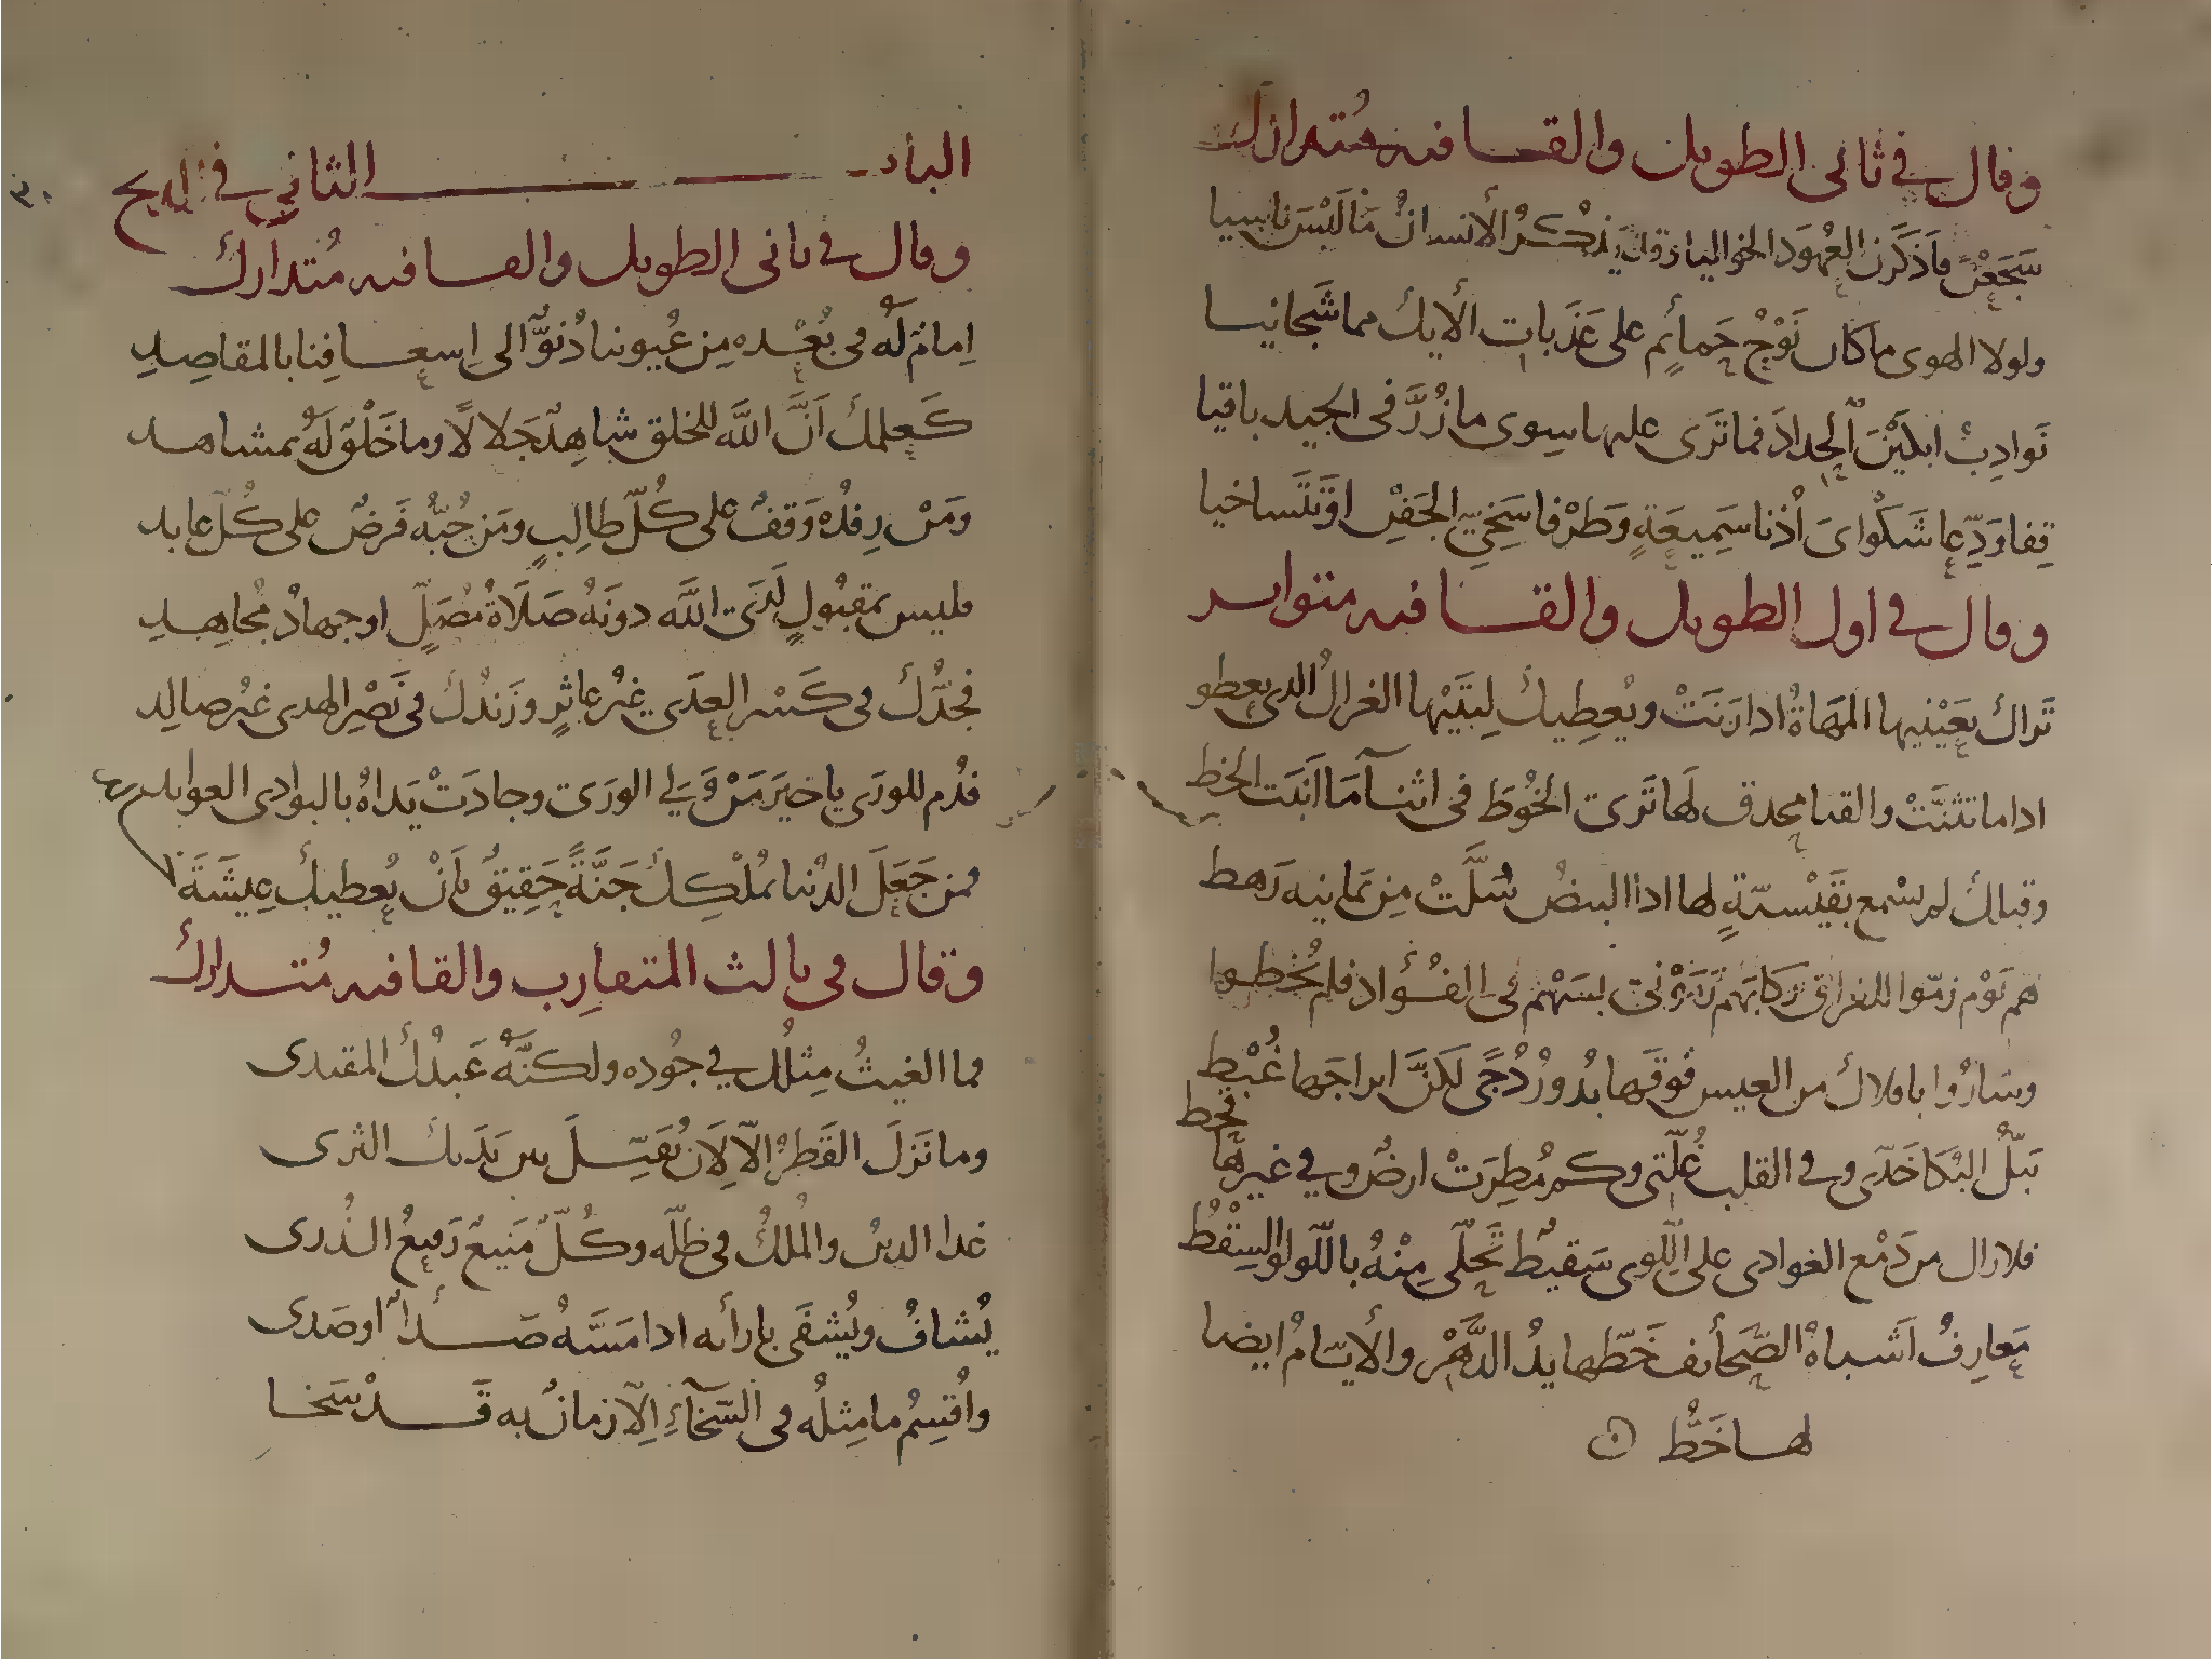 وقال في ثاني الطويل والقافيه متدارك
سَجَعْنَ فاَذكَرن العُهودَ الخواليا وقد يَذْكُرُ الأنسانُ مَا لَيْسَ ناسيا
ولولا الهوى ما كان نَوْحُ حَمائمٍ على عَذَبات الأيك مما شَجانيا
نَوادِبُ ابلَيْنَ الحِدادَ فما تَرَى عليها سِوى ما زُرَّ في الجيد باقيا
قِفا وَدِّعا شَكْواىَ أُذْنا سَمِيعَةٍ وَطَرْفا سَخِيّ الجَفْنِ
وقال في اول الطويل والقافيه متواتر
تَراك بعَيْنيها المَهَاةُ اذا رَنَتْ ويُعطِيك لِيتَيْها الغزالُ الذى يعطو
اذا ما تثنَّتْ والقنا محدق لَها تَرى الخُوطَ في اثنآ مَا اَنبَت الخط
وقبلك لم نسْمع بقَيْسيّةٍ لها اذا البيضُ سُلَّتْ مِن يمانيه رَهط
هم يَوْم زمّوا للفراق رَكابَهم رَمَوْنى بسَهْم في الفُؤاد فلم يُخطوا
وسَارُوا بافلاك من العيس فَوقَها بُدورُ دُجًى لَكنَّ ابراجَها غُبْط
يَبلُّ البُكا خَدّى وفي القلب غُلّتى وكم مُطِرَتْ ارضٌ وفي غيرها قحط
فلا زال من دَمْع الغوادى على اللِّوى سَقيطٌ تَحلّى مِنْهُ باللّولو السِقْطُ
مَعارِفُ اَشباهُ الصَّحائف خَطّها يدُ الدَّهْر والأيّامُ ايضا
لها خَطُّ
الباب الثاني في المديح
وقال في ثاني الطويل والقافيه مُتدارك
اِمامٌ لَه في بُعْده مِن عُيوننا دُنوٌّ الى اِسعافِنا بالمقاصِدِ
كَعلمك اَنَّ اللَّه للخلق شاهِدٌ جَلالًا وما خَلْقٌ لَهُ بمشاهد
ومَنْ رِفدُه وَقفٌ على كُلّ طالِبٍ ومَن حُبّه فَرضٌ على كُلّ عابد
فليس بمقبُولٍ لَدَى اللَّه دونَهُ صَلَاةُ مُصَلٍّ او جهادُ مُجاهِدِ
فجَدُّك في كَسْر العِدَى غيرُ عاثِرٍ وزَندُك في نَصْرِ الهدى غيرُ صالِد
فدُم للورَى يا خيرَ مَنْ وَلِيَ الورَى وجادَتْ يَداهُ بالبوادى العوايد
فمن جَعَلَ الدُنيا بمُلْكِكَ جَنَّةً حَقِيقٌ بأَنْ يُعطيك عِيشَةَ
وقال في ثالث المتقارب والقافيه مُتدارك
فما الغيثُ مِثلُك في جُوده ولكنَّهُ عَبدُك المقتدى
وما نَزلَ القَطرُ الّا لِأن يُقَبِّلَ بين يَدَيك الثرى
غدا الدينُ والمُلكُ في ظلّه وكُلٌّ مَنيعٌ رَفيعُ الذُرى
يُشافُ ويُشفَى بارائه اذا مَسَّهُ صَدأٌ او صَدى
واُقسِمُ ما مِثلُه في السَّخآءِ اِلّا زمانٌ به قَدْ سَخا